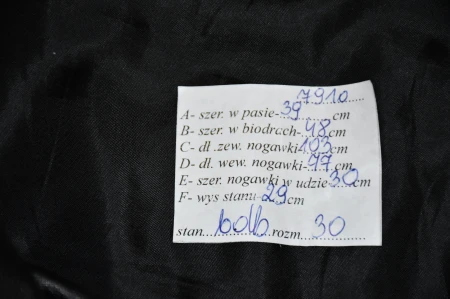 7910
A- szer. w pasie-39 cm
B- szer. w biodrach-48 cm
C- dł .zew. nogawki 103 cm
D- dł. wew. nogawki-77 cm
E- szer. nogawki w udzie 30 cm
F- wys stanu-29 cm
stan bdb rozm. 30